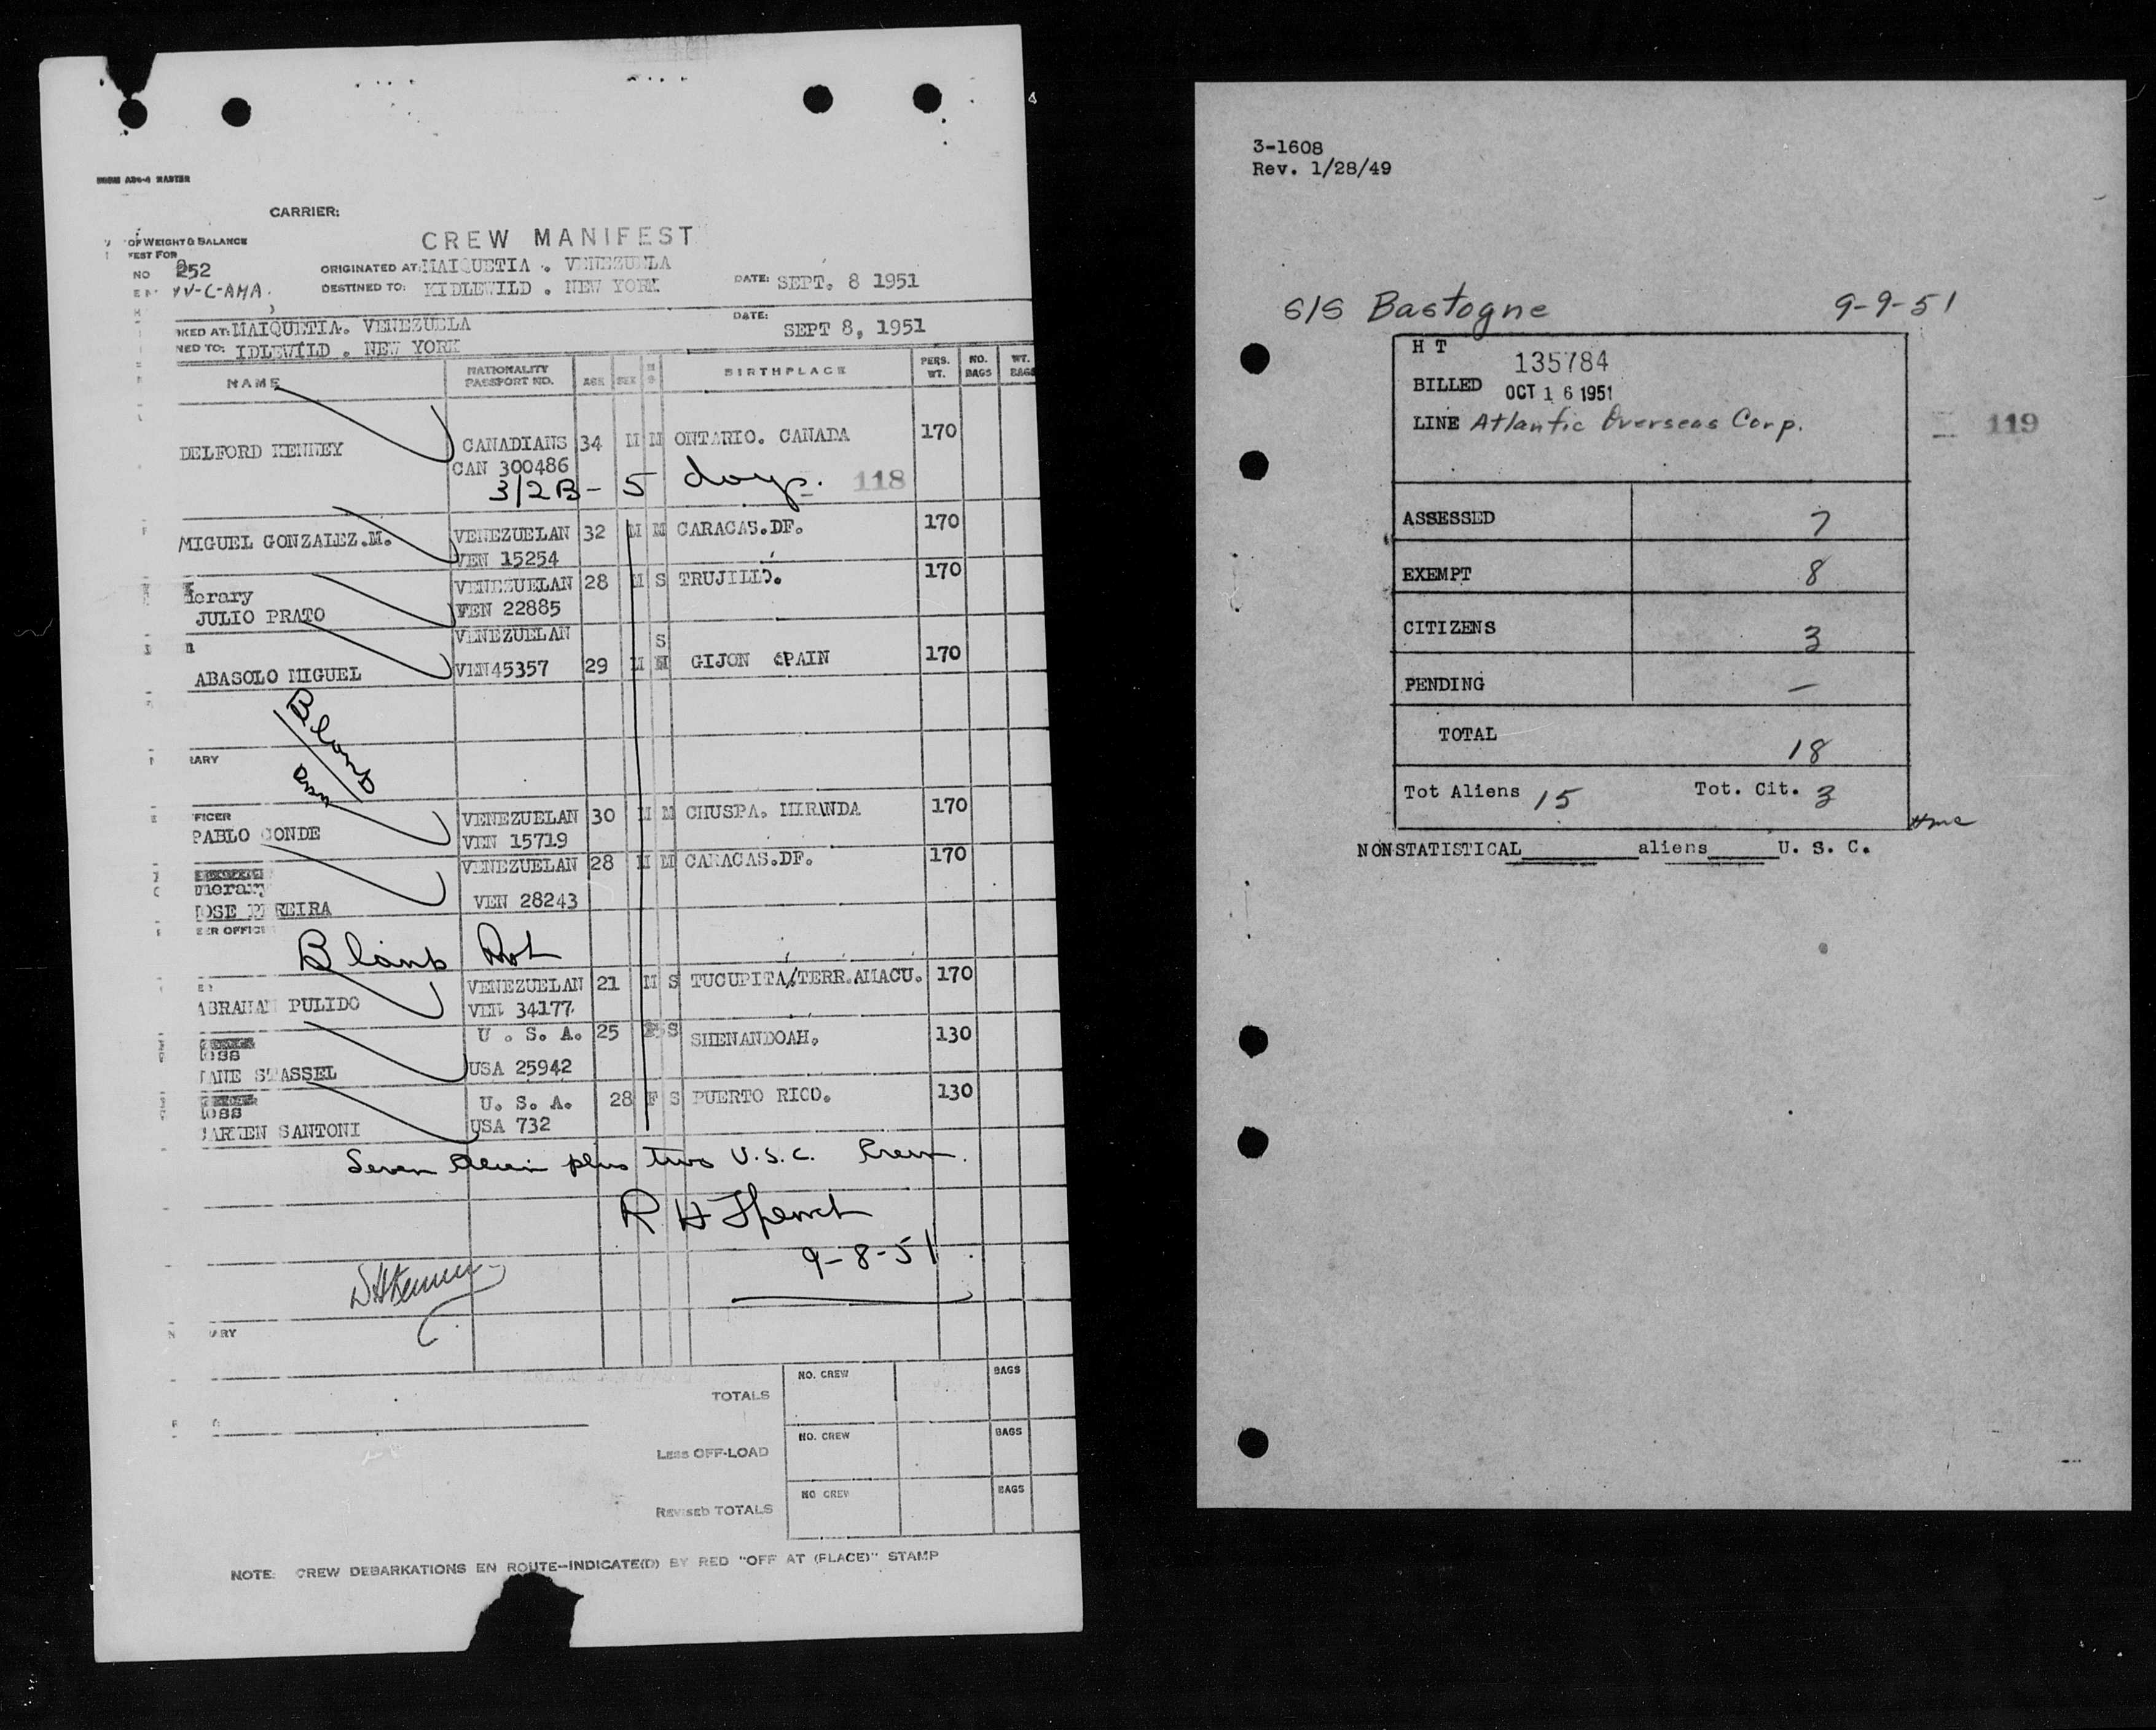 CARRIER:
OF WEIGHT & BALANCE
CREW MANIFEST
NO 252
ORIGINATED AT: MAIQUETIA . VENEZUELA
DATE: SEPT. 8 1951
YV-C-AMA.
DESTINED TO: KIDLEWILD . NEW YORK
KED AT: MAIQUETIA. VENEZUELA
DATE: SEPT 8, 1951
NED TO: IDLEWILD . NEW YORK
NAME NATIONALITY PASSPORT NO. AGE SEX M S BIRTHPLACE PERS. WT. NO. BAGS WT. BAGS
DELFORD KENNEY CANADIANS 34 M M ONTARIO. CANADA 170
CAN 300486
3/2B- 5 days. 118
MIGUEL GONZALEZ.M. VENEZUELAN 32 M M CARACAS.DF. 170
VEN 15254
erary VENEZUELAN 28 M S TRUJILLO. 170
JULIO PRATO VEN 22885
n VENEZUELAN S
ABASOLO MIGUEL VEN45357 29 M M GIJON SPAIN 170
Blank
RARY
FICER VENEZUELAN 30 M M CHUSPA. MIRANDA 170
PABLO CONDE VEN 15719
VENEZUELAN 28 M M CARACAS.DF. 170
merary
JOSE PEREIRA VEN 28243
ER OFFICE
Blank
ABRAHAM PULIDO VENEZUELAN 21 M S TUCUPITA/TERR.AMACU. 170
VEN 34177
U . S. A. 25 F S SHENANDOAH. 130
oss
JANE STASSEL USA 25942
U. S. A. 28 F S PUERTO RICO. 130
oss
CARMEN SANTONI USA 732
Seven Alien plus two U.S.C. Crew.
9-8-51
ARY
TOTALS NO. CREW BAGS
Less OFF-LOAD NO. CREW BAGS
Revised TOTALS NO CREW BAGS
NOTE: CREW DEBARKATIONS EN ROUTE--INDICATE(D) BY RED "OFF AT (PLACE)" STAMP
3-1608
Rev. 1/28/49
S/S Bastogne 9-9-51
H T 135784
BILLED OCT 16 1951
LINE Atlantic Overseas Corp.
119
ASSESSED 7
EXEMPT 8
CITIZENS 3
PENDING —
TOTAL 18
Tot Aliens 15 Tot. Cit. 3
NONSTATISTICAL________aliens_____U. S. C.